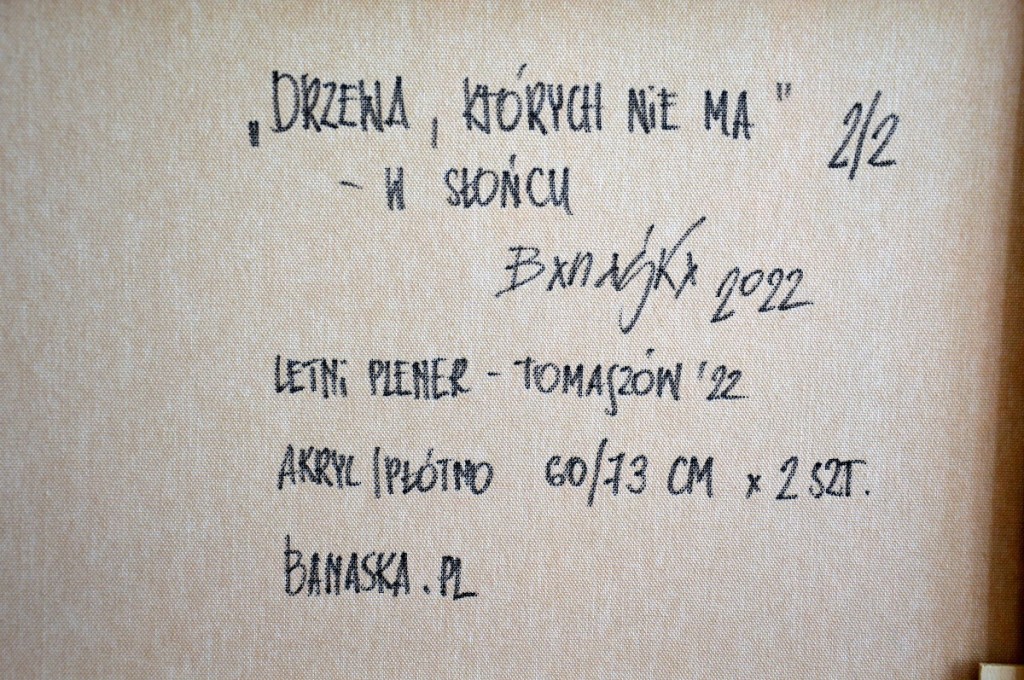 „DRZEWA, KTÓRYCH NIE MA" 2/2
- W SŁOŃCU
BANAŚKA 2022
LETNI PLENER - TOMASZÓW '22
AKRYL/PŁÓTNO 60/73 CM x 2 SZT.
BANASKA.PL